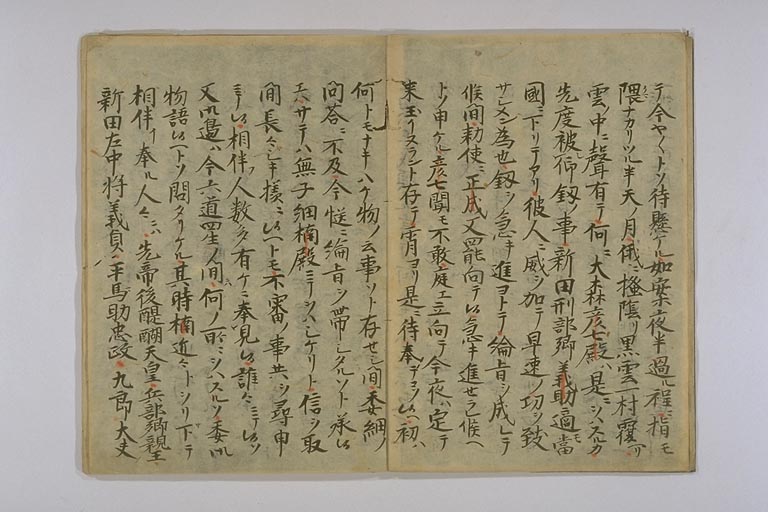 テ今ヤ〱トソ待懸ケル如案夜半過ル程ニ指モ
隈ナカリツル半天ノ月俄ニ掻陰リ黒雲一村覆リ
雲ノ中ニ聲有テ何ニ大森彦七殿ハ是ニシハスルカ
先度被仰釼ノ事新田刑部卿義助適當
國ニ下リテアリ彼人ニ威ヲ加テ早速ノ功ヲ致
サシメン為也釼ヲ急キ進ヨトテ綸旨ヲ成レテ
候間勅使ニ正成又罷向テ候急キ進セラレ候ヘ
トソ申ケル彦七聞モ不敢庭エ立向テ今夜ハ定テ
来玉リヌラント存テ宵ヨリ是ニ待奉テコソ候ヘ初ハ
何トモナキハケ物ノ云事ソト存セシ間委細ノ
問答ニ不及今慥ニ綸旨ヲ帯シタルソト承候
エハサテハ無子細楠殿ニテシハシケリト信ヲ取
間長々シキ様ニ候ヘトモ不審ノ事共ヲ尋申
ニテ候相伴フ人数多有ケニ奉見候誰々ニテ候ソ
又御邊ハ今六道四生ノ間何ノ所ニシハスルソ委御
物語候ヘトソ問タリケル其時楠近々トシリ下テ
相伴ヒ奉ル人々ニハ先帝後醍醐天皇兵部卿親王
新田左中将義貞平馬助忠政九郎大夫